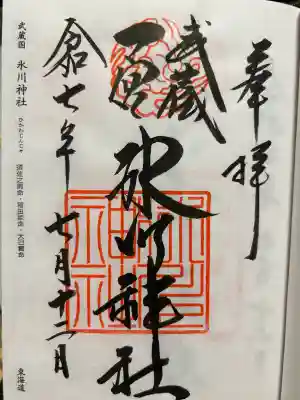 奉拝
武蔵
一宮
氷川神社
令七年 七月十二日
武蔵國 氷川神社
ひかわじんじゃ
須佐之男命・稲田姫命・大己貴命
東海道